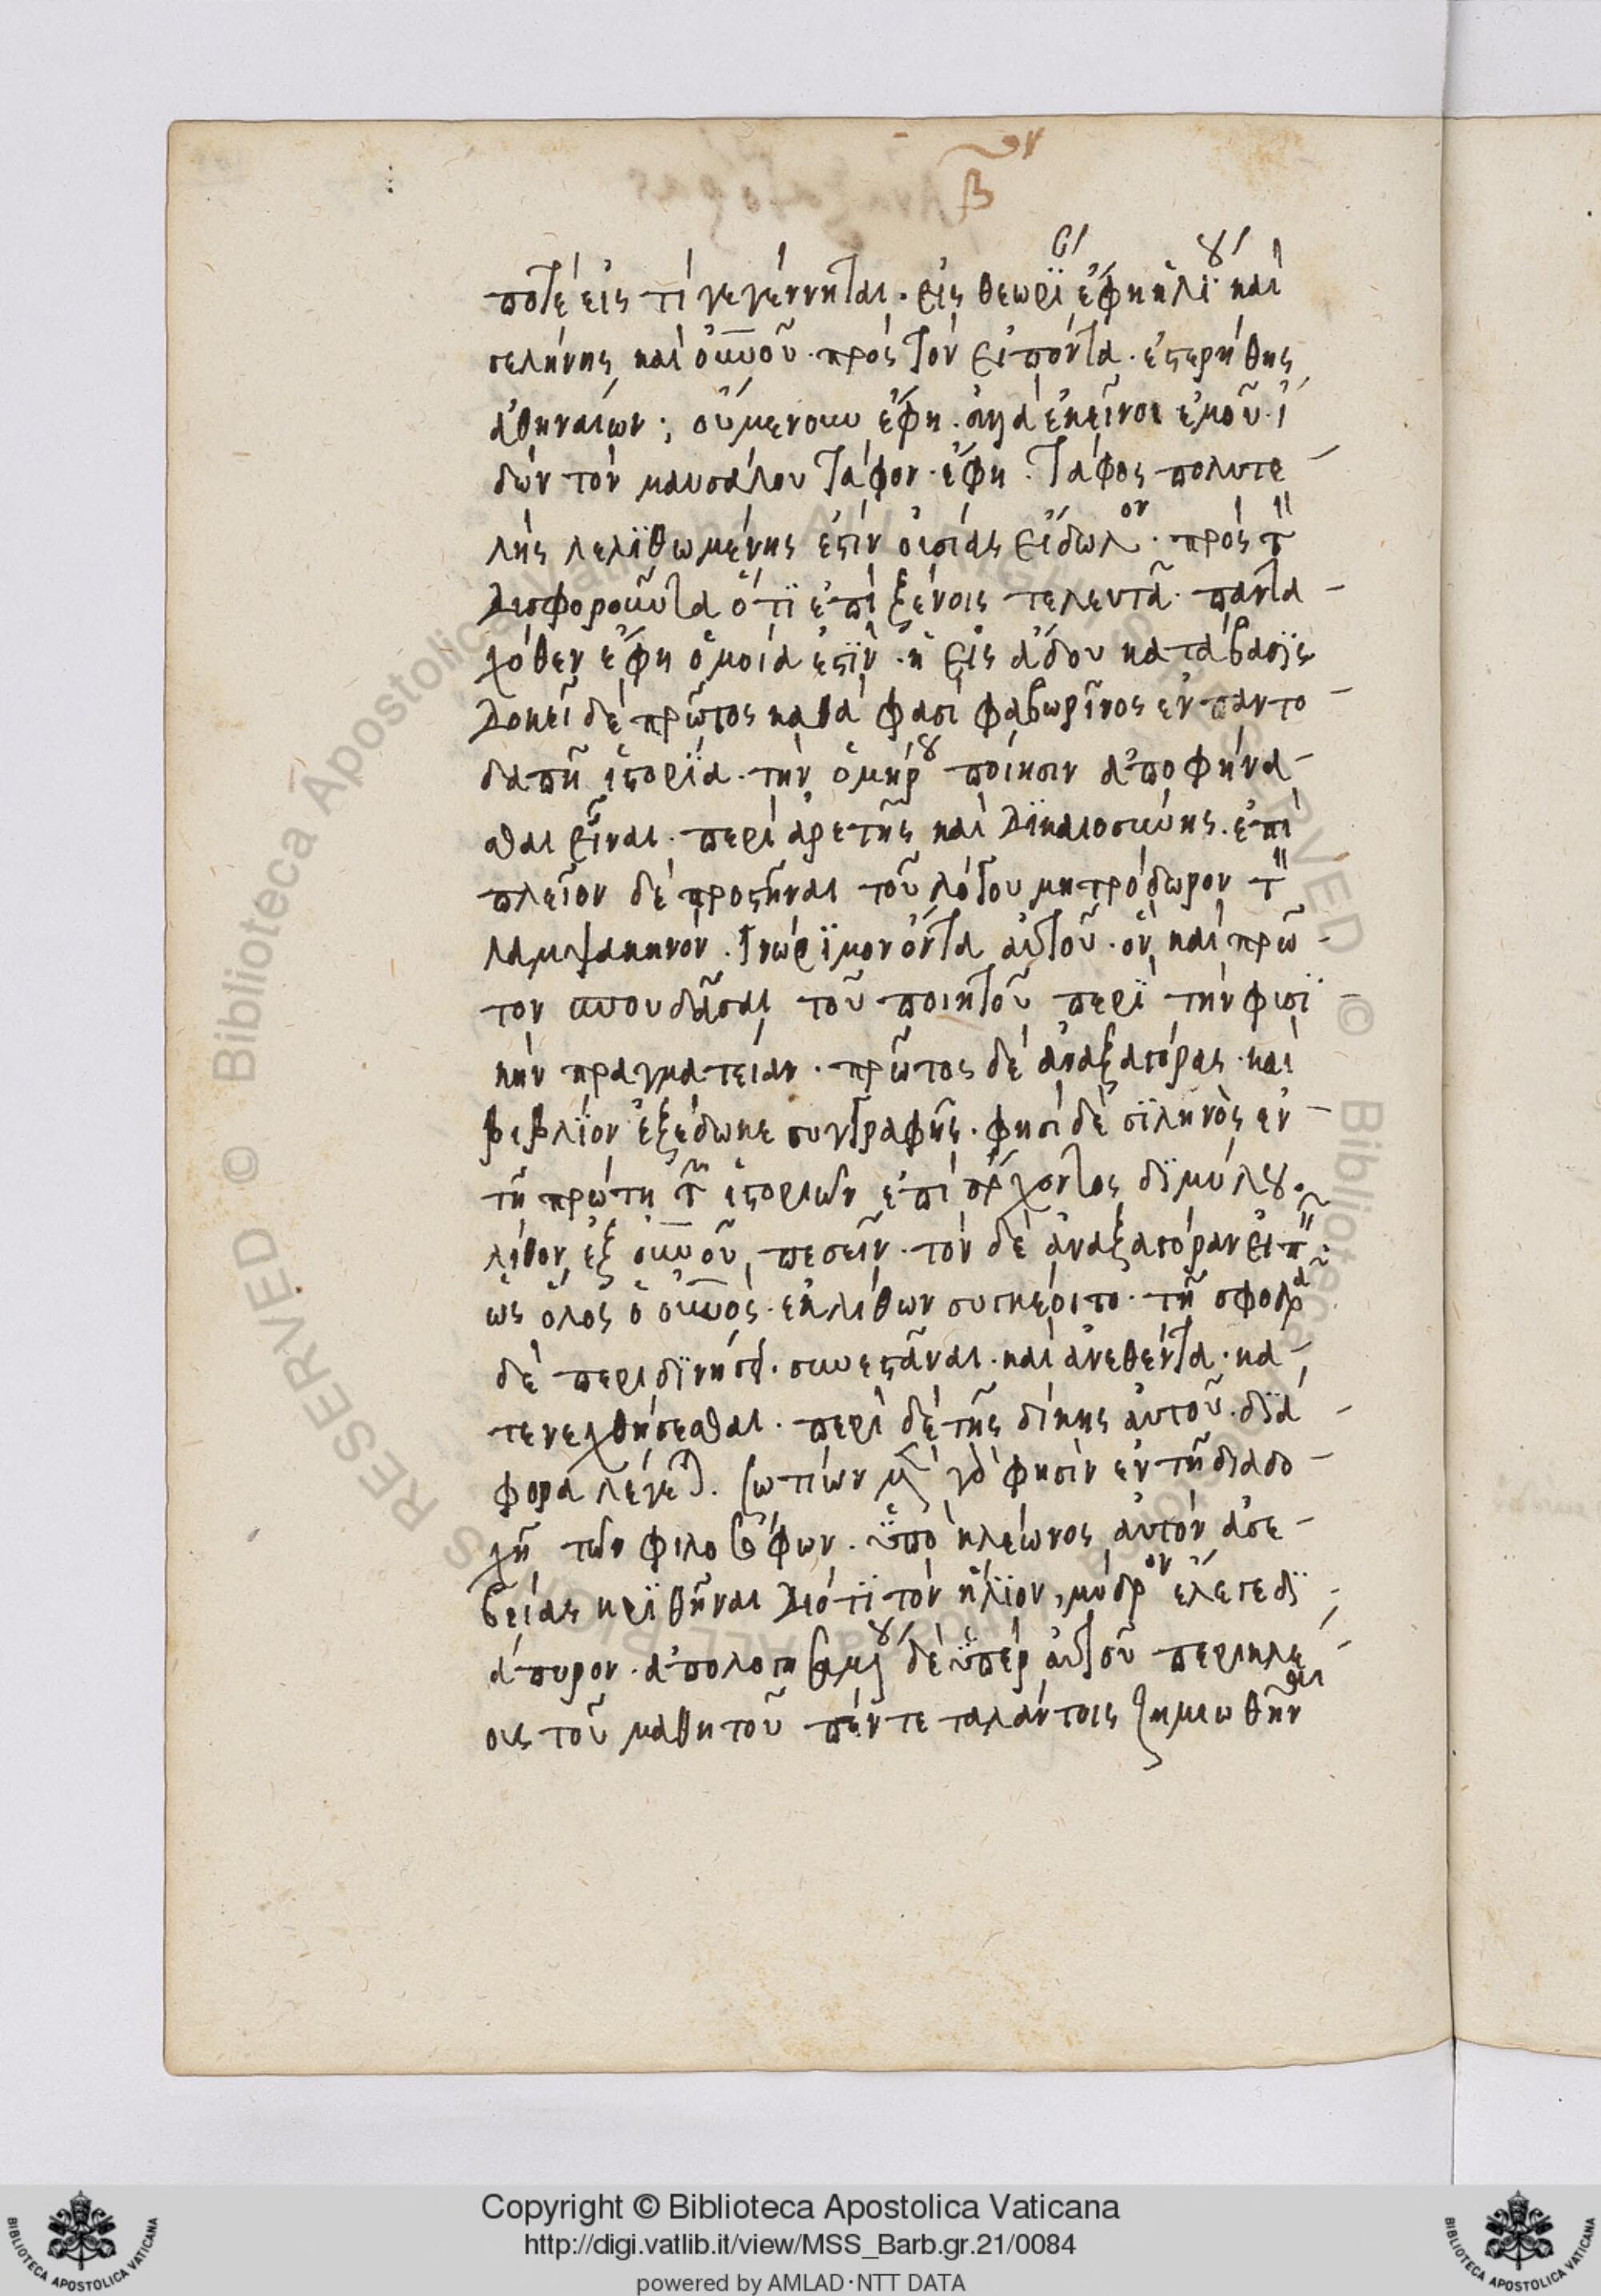 βον
ποτέ εἰς τί γεγέννηται · εἰς θεωρίαν ἔφη ἡλίου καὶ
σελήνης καὶ οὐνοῦ · πρὸς τὸν εἰπόντα · ἐστερήθης
ἀθηναίων ; οὐμενοῦν ἔφη · ἀλλὰ ἐκεῖνοι ἐμοῦ · ἰ
δὼν τὸν μαυσάλου τάφον · ἔφη · τάφος πολυτε
λὴς λελιθωμένης ἐστὶν οὐσίας εἴδωλον · πρὸς τὸν
δυσφοροῦντα ὅτι ἐπὶ ξένοις τελευτᾶ · παντα
χόθεν ἔφη ὁμοία ἐστὶν · ἡ εἰς ἅδου κατάβασις
δοκεῖ δὲ πρῶτος καθά φασι φαβωρῖνος ἐν παντο
δαπῆ ἱστορία · τὴν ὁμήρου ποίησιν ἀποφήνα
σθαι εἶναι · περὶ ἀρετῆς καὶ δικαιοσύνης · ἐπὶ
πλεῖον δὲ προστῆναι τοῦ λόγου μητρόδωρον τὸν
λαμψακηνόν · γνώριμον ὄντα αὐτοῦ · ὃν καὶ πρῶ
τον σπουδᾶσαι τοῦ ποιητοῦ περὶ τὴν φυσι
κὴν πραγματείαν · πρῶτος δὲ ἀναξαγόρας · καὶ
βιβλίον ἐξέδωκε συγγραφῆς · φησὶ δὲ σιληνὸς ἐν
τῆ πρώτη τῶν ἱστοριῶν ἐπὶ ἄρχοντος διμύλου ·
λίθον ἐξ οὐνοῦ πεσεῖν · τὸν δὲ ἀναξαγόραν εἰπεῖν
ὡς ὅλος ὁ οὐνὸς · ἐκ λίθων συγκέοιτο · τῆ σφοδρᾶ
δὲ περιδινήσει · συνεστᾶναι · καὶ ἀνεθέντα · κα
τενεχθήσεσθαι · περὶ δὲ τῆς δίκης αὐτοῦ · διά
φορα λέγεται · σωτίων μὲν γάρ φησιν ἐν τῆ διαδο
χῆ τῶν φιλοσόφων · ὑπὸ κλέωνος αὐτὸν ἀσε
βείας κριθῆναι διότι τὸν ἥλιον, μύδρον ἔλεγε δι
άπυρον · ἀπολογησαμένου δὲ ὑπὲρ αὐτοῦ περικλέ
ους τοῦ μαθητοῦ πέντε ταλάντοις ζημιωθῆναι
© Biblioteca Apostolica Vaticana ALL RIGHTS RESERVED © Biblioteca Apostolica Vaticana ALL RIGHTS RESERVED
Copyright © Biblioteca Apostolica Vaticana
http://digi.vatlib.it/view/MSS_Barb.gr.21/0084
powered by AMLAD · NTT DATA
BIBLIOTECA APOSTOLICA VATICANA
BIBLIOTECA APOSTOLICA VATICANA